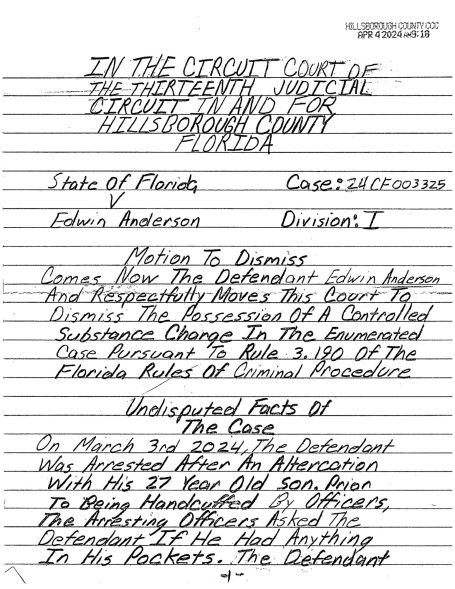 HILLSBOROUGH COUNTY CCC
APR 4 2024 AM9:18
IN THE CIRCUIT COURT OF
THE THIRTEENTH JUDICIAL
CIRCUIT IN AND FOR
HILLSBOROUGH COUNTY
FLORIDA
State Of Florida Case: 24CF003325
V
Edwin Anderson Division: I
Motion To Dismiss
Comes Now The Defendant Edwin Anderson
And Respectfully Moves This Court To
Dismiss The Possession Of A Controlled
Substance Charge In The Enumerated
Case Pursuant To Rule 3.190 Of The
Florida Rules Of Criminal Procedure
Undisputed Facts Of
The Case
On March 3rd 2024, The Defendant
Was Arrested After An Altercation
With His 27 Year Old Son. Prior
To Being Handcuffed By Officers,
The Arresting Officers Asked The
Defendant If He Had Anything
In His Pockets. The Defendant
-1-